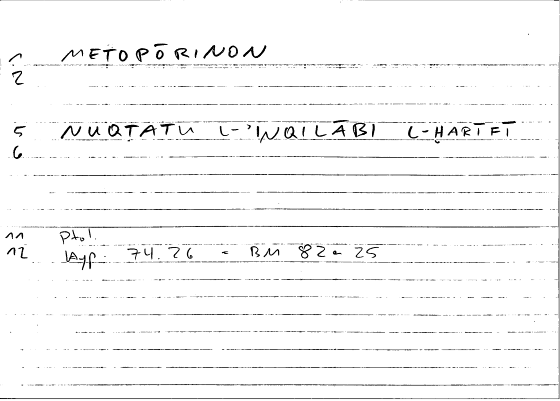 1 METOPŌRINON
2
5 NUQṬATU L-ʾINQILĀBI L-ḪARĪFĪ
6
11 Ptol
12 Hyp. 74.26 = BM 82a 25